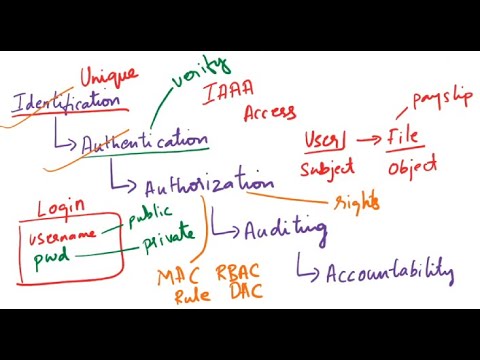 Unique
Identification
verify
IAAA
Access
Authentication
payslip
User → File
Subject Object
Authorization
rights
Login
username public
pwd private
Auditing
MAC RBAC
Rule DAC
Accountability